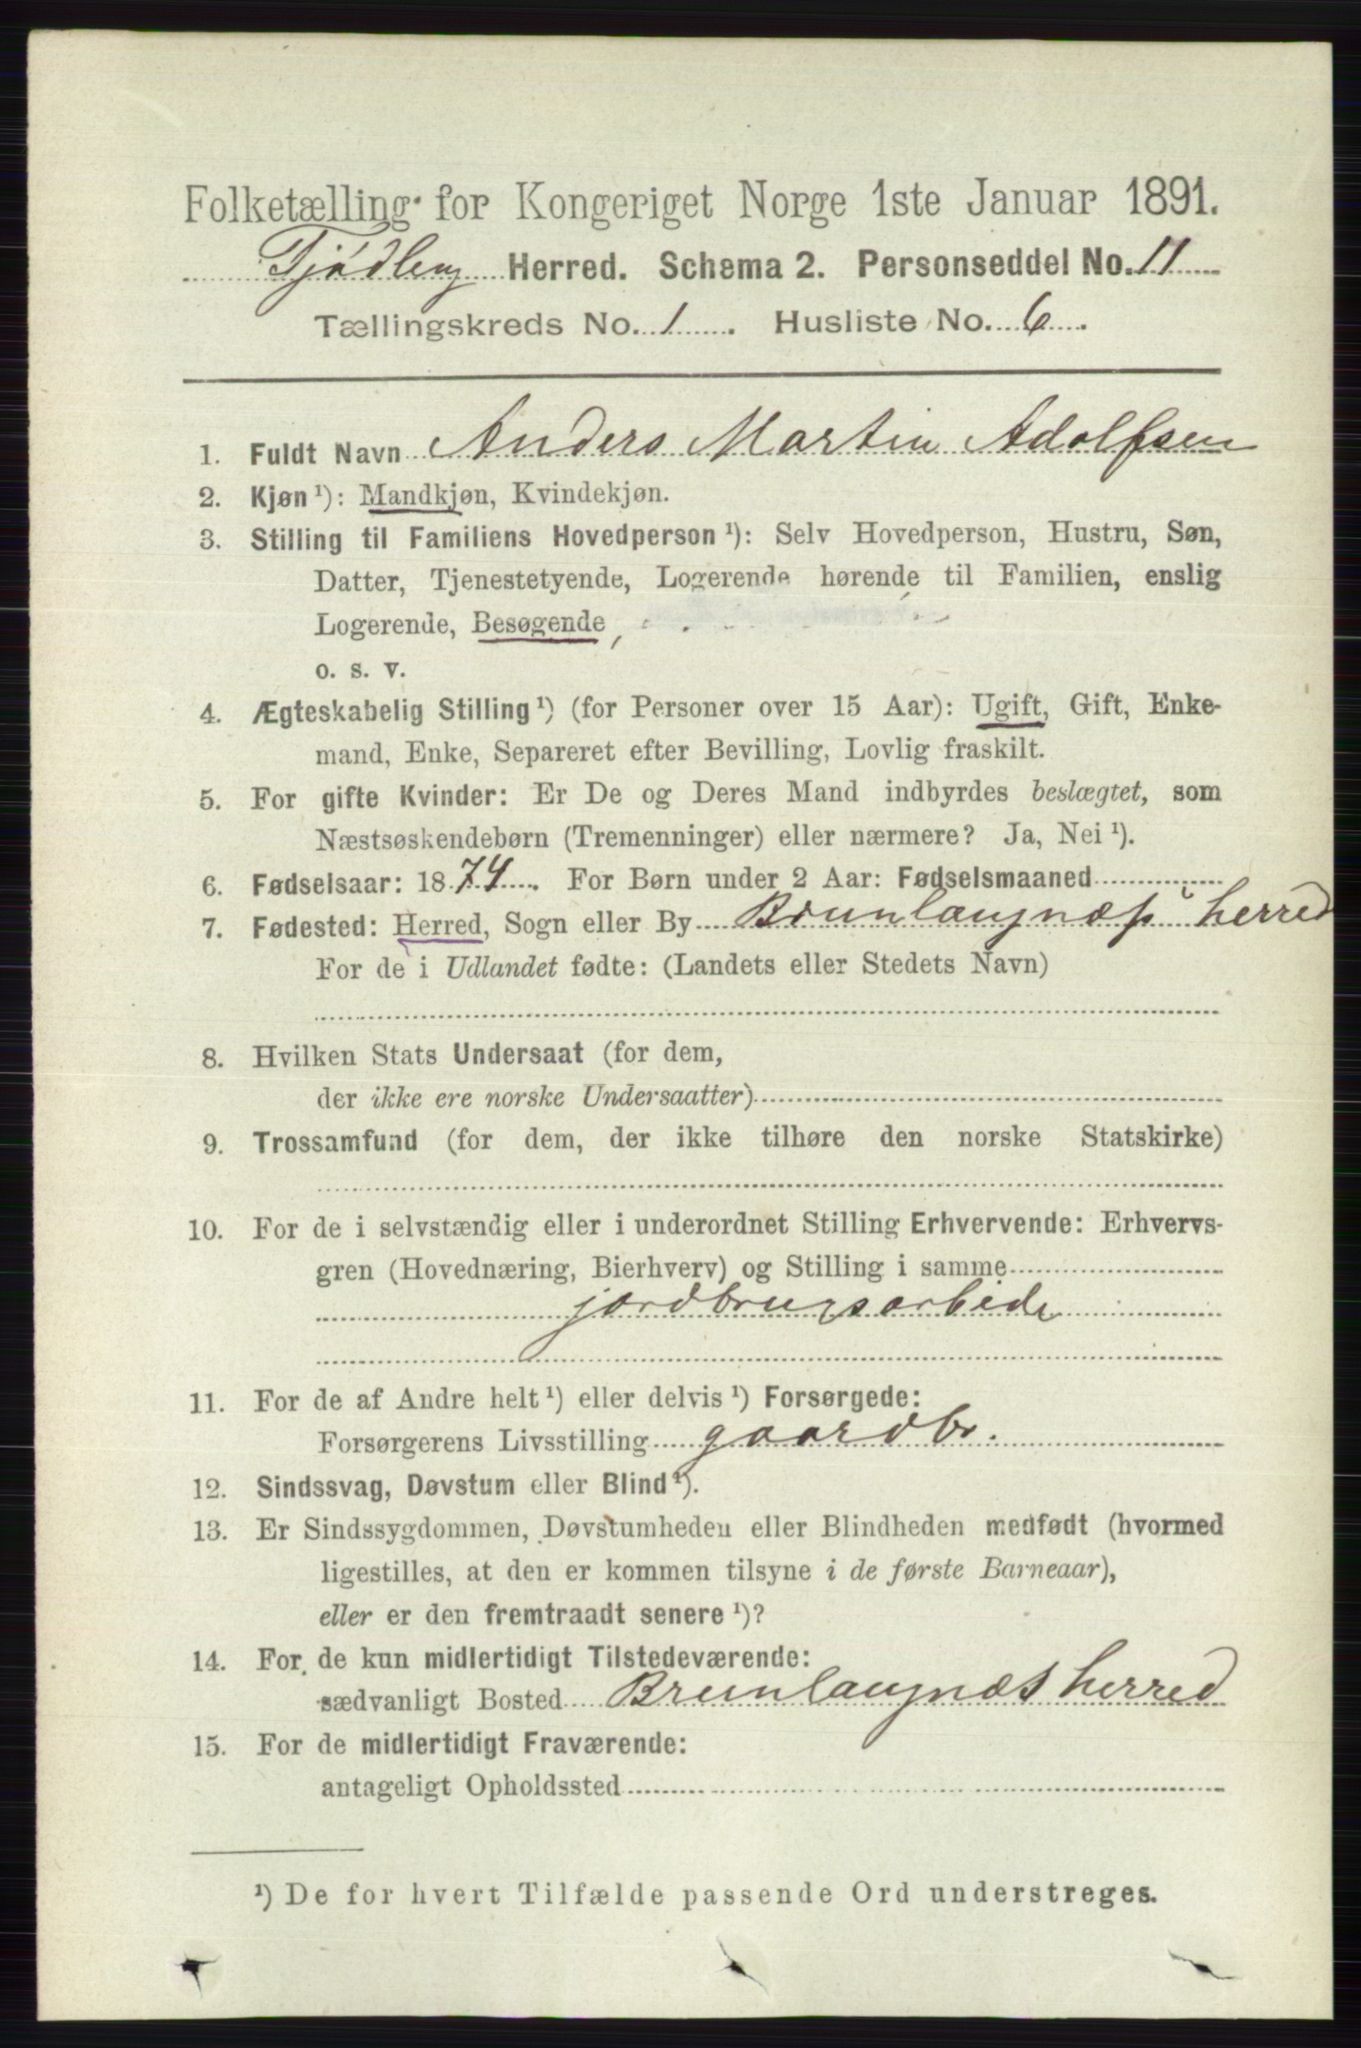 Folketælling for Kongeriget Norge 1ste Januar 1891.
Tjødling Herred. Schema 2. Personseddel No. 11
Tællingskreds No. 1. Husliste No. 6.
1. Fuldt Navn Anders Martin Adolfsen
2. Kjøn¹): Mandkjøn, Kvindekjøn.
3. Stilling til Familiens Hovedperson¹): Selv Hovedperson, Hustru, Søn,
Datter, Tjenestetyende, Logerende hørende til Familien, enslig
Logerende, Besøgende,
o. s. v.
4. Ægteskabelig Stilling¹) (for Personer over 15 Aar): Ugift, Gift, Enke-
mand, Enke, Separeret efter Bevilling, Lovlig fraskilt.
5. For gifte Kvinder: Er De og Deres Mand indbyrdes beslægtet, som
Næstsøskendebørn (Tremenninger) eller nærmere? Ja, Nei¹).
6. Fødselsaar: 1874. For Børn under 2 Aar: Fødselsmaaned
7. Fødested: Herred, Sogn eller By Brunlaugnæss herred
For de i Udlandet fødte: (Landets eller Stedets Navn)
8. Hvilken Stats Undersaat (for dem,
der ikke ere norske Undersaatter)
9. Trossamfund (for dem, der ikke tilhøre den norske Statskirke)
10. For de i selvstændig eller i underordnet Stilling Erhvervende: Erhvervs-
gren (Hovednæring, Bierhverv) og Stilling i samme
jordbrugsarbeide
11. For de af Andre helt¹) eller delvis¹) Forsørgede:
Forsørgerens Livsstilling gaardbr.
12. Sindssvag, Døvstum eller Blind¹).
13. Er Sindssygdommen, Døvstumheden eller Blindheden medfødt (hvormed
ligestilles, at den er kommen tilsyne i de første Barneaar),
eller er den fremtraadt senere¹)?
14. For de kun midlertidigt Tilstedeværende:
sædvanligt Bosted Brunlaugnæs herred
15. For de midlertidigt Fraværende:
antageligt Opholdssted
¹) De for hvert Tilfælde passende Ord understreges.